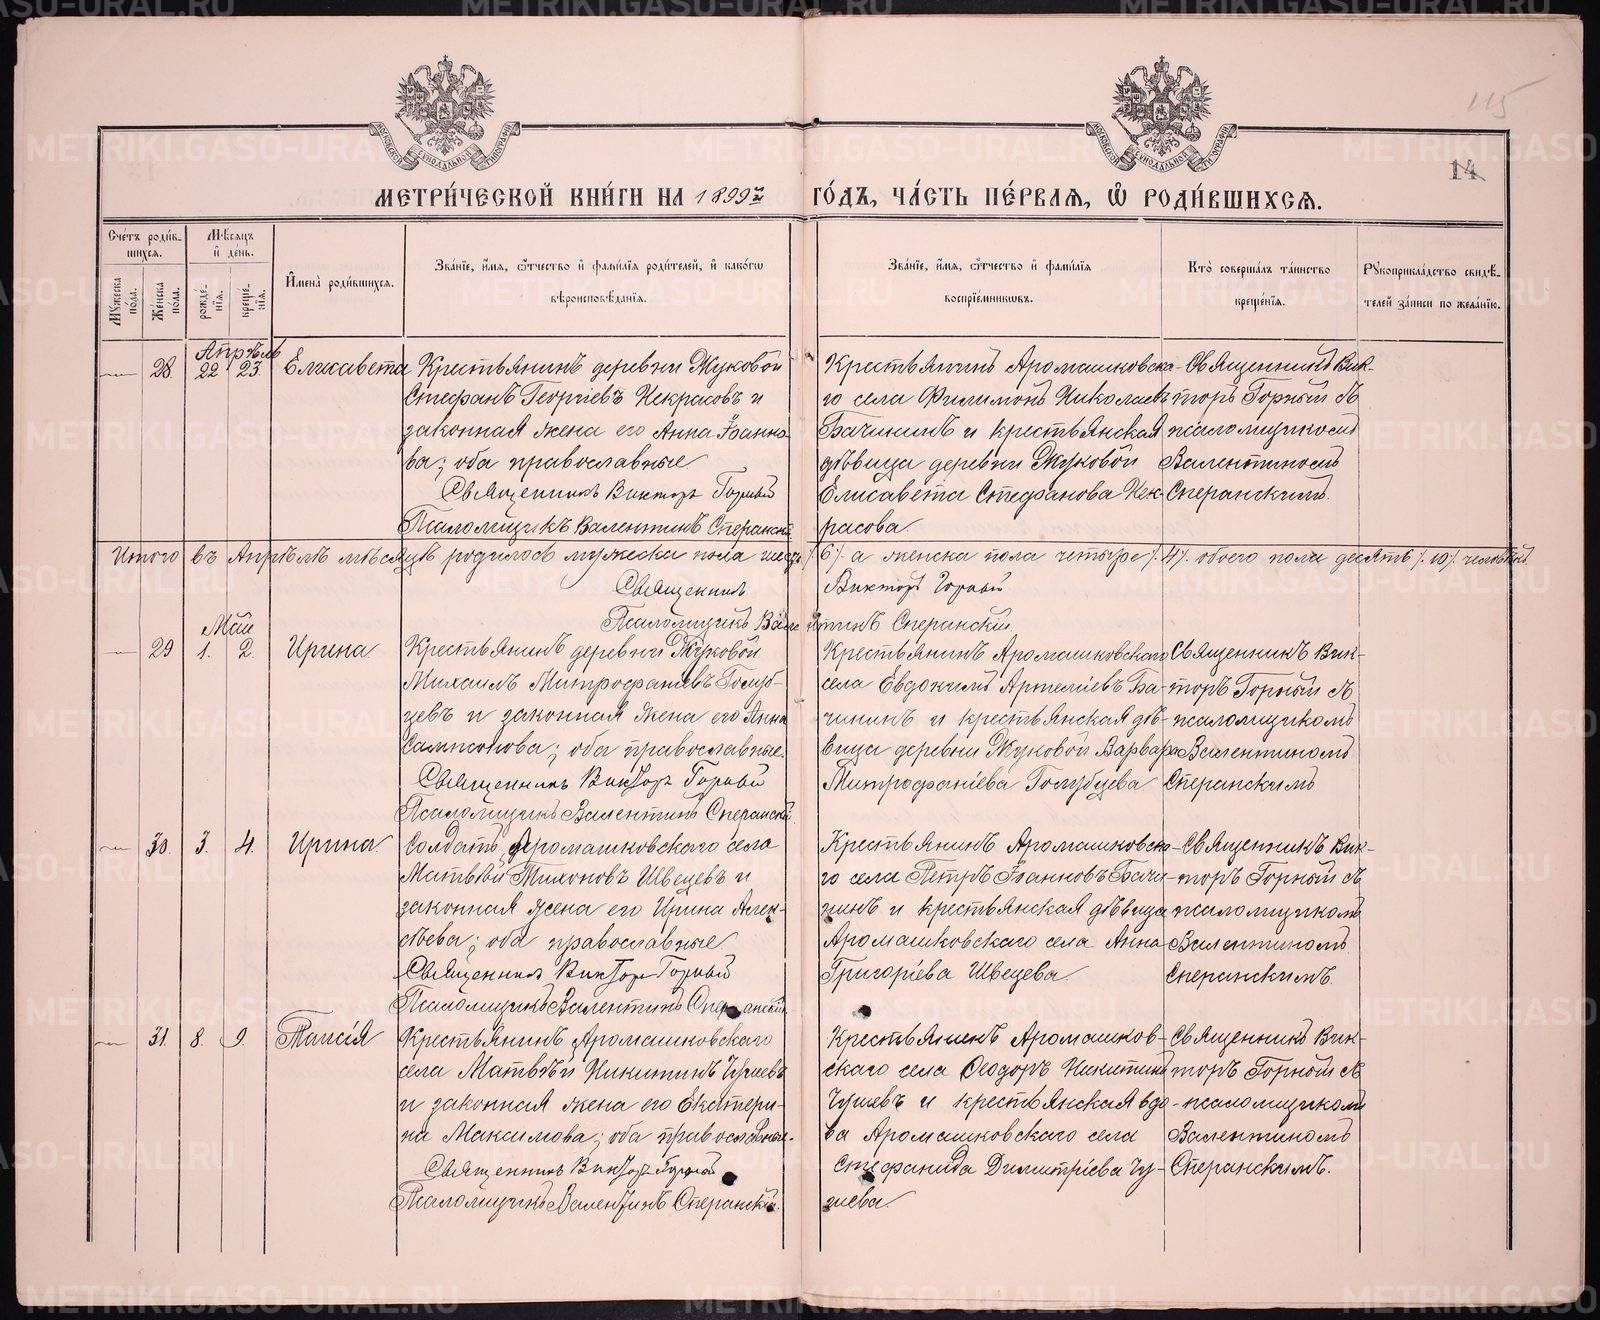 115
14
МЕТРИ́ЧЕСКОЙ КНИ́ГИ НА 1899й ГО́ДЪ, ЧА́СТЬ ПЕ́РВАѦ, Ѡ҆ РОДИ́ВШИХСѦ.
Сче́тъ роди́в-
шихсѧ.
Мѣ́сѧцъ
и҆ де́нь.
Мꙋ́жеска по́ла.
Же́нска по́ла.
рожде́-нїѧ.
креще́-нїѧ.
И҆мена̀ роди́вшихсѧ.
Зва́нїе, и҆́мѧ, ѻ҆́тчество и҆ фами́лїѧ роди́телей, и҆ како́гѡ
вѣроисповѣ́данїѧ.
Зва́нїе, и҆́мѧ, ѻ҆́тчество и҆ фами́лїѧ
воспрїе́мниковъ.
Кто̀ соверша́лъ та́инство
креще́нїѧ.
Рꙋкоприкла́дство свидѣ́-
телей за́писи по жела́нїю.
Апрѣль
28 22 23 Елисавета
Крестьянинъ деревни Жуковой
Стефанъ Георгіевъ Некрасовъ и
законная жена его Анна Іоанно-
ва; оба православные
Священникъ Викторъ Горный
Псаломщикъ Валентинъ Сперанскій
Крестьянинъ Аромашковска-
го села Филимонъ Николаевъ
Бачининъ и крестьянская
дѣвица деревни Жуковой
Елисавета Стефанова Нек-
расова
Священникъ Вик-
торъ Горный съ
псаломщикомъ
Валентиномъ
Сперанскимъ.
Итого въ Апрѣлѣ мѣсяцѣ родилось мужеска пола шесть /6/. а женска пола четыре /.4/. обоего пола десять /.10/. человѣкъ.
Священникъ Викторъ Горный
Псаломщикъ Валентинъ Сперанскій
Май
29 1. 2. Ирина
Крестьянинъ деревни Жуковой
Михаилъ Митрофаніевъ Голуб-
цевъ и законная жена его Анна
Сампсонова; оба православные.
Священникъ Викторъ Горный
Псаломщикъ Валентинъ Сперанскій.
Крестьянинъ Аромашковскаго
села Евдокимъ Артеміевъ Ба-
чининъ и крестьянская дѣ-
вица деревни Жуковой Варвара
Митрофаніева Голубцева
Священникъ Вик-
торъ Горный съ
псаломщикомъ
Валентиномъ
Сперанскимъ
30. 3. 4. Ирина
Солдатъ Аромашковскаго села
Матвѣй Тихоновъ Швецевъ и
законная жена его Ирина Алек-
сѣева; оба православные
Священникъ Викторъ Горный
Псаломщикъ Валентинъ Сперанскій.
Крестьянинъ Аромашковска-
го села Петръ Іоанновъ Бачи-
нинъ и крестьянская дѣвица
Аромашковскаго села Анна
Григоріева Швецева.
Священникъ Вик-
торъ Горный съ
псаломщикомъ
Валентиномъ
Сперанскимъ.
31. 8. 9. Таисія
Крестьянинъ Аромашковскаго
села Матвѣй Никитинъ Чушевъ
и законная жена его Екатери-
на Максимова; оба православные.
Священникъ Викторъ Горный
Псаломщикъ Валентинъ Сперанскій.
Крестьянинъ Аромашков-
скаго села Ѳеодоръ Никитинъ
Чушевъ и крестьянская вдо-
ва Аромашковскаго села
Стефанида Димитріева Чу-
шева.
Священникъ Вик-
торъ Горный съ
псаломщикомъ
Валентиномъ
Сперанскимъ.
METRIKI.GASO-URAL.RU